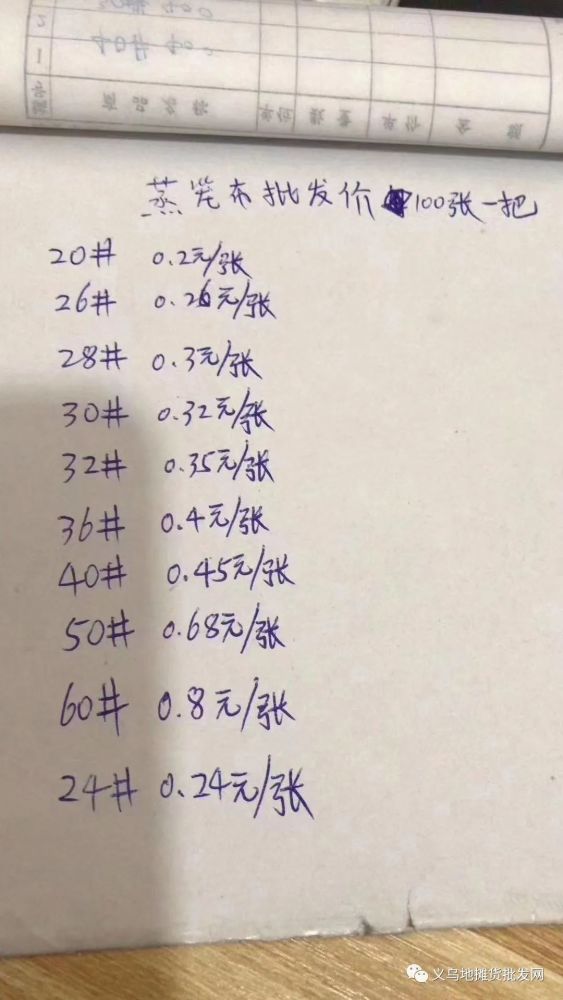 40# 40
蒸笼布批发价 100张一把
20# 0.2元/张
26# 0.26元/张
28# 0.3元/张
30# 0.32元/张
32# 0.35元/张
36# 0.4元/张
40# 0.45元/张
50# 0.68元/张
60# 0.8元/张
24# 0.24元/张
义乌地摊货批发网